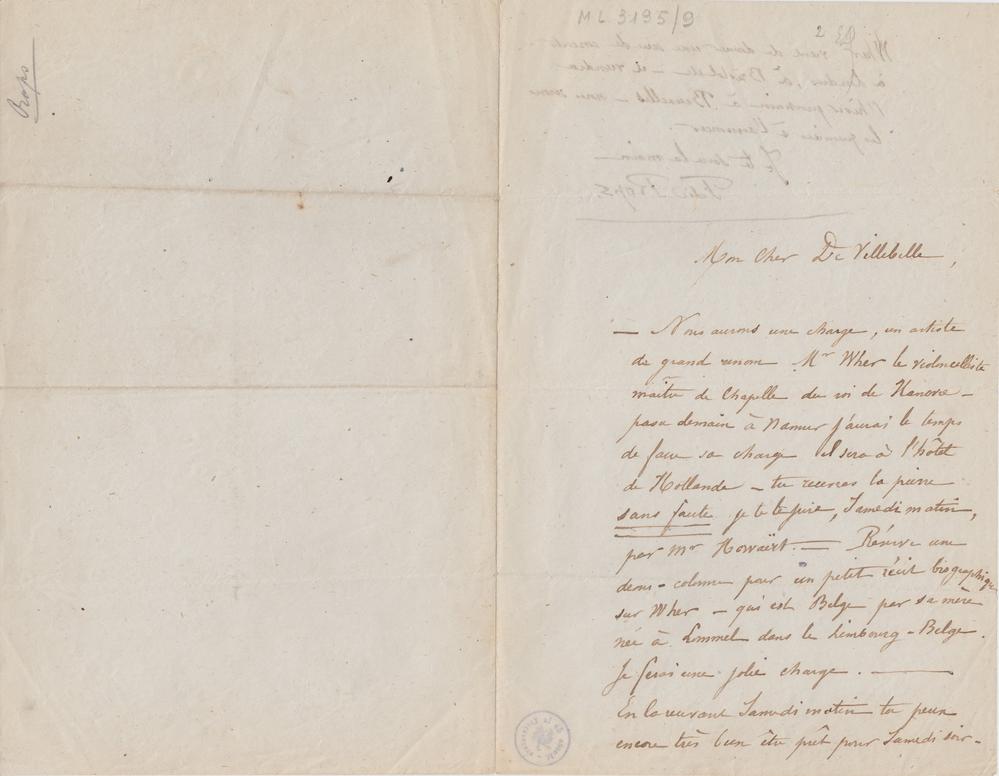 Rops
ML 3195/9
2
Mon Cher De Villebelle,
— Nous aurons une charge, un artiste
de grand renom Mr Wher le violoncelliste
maître de Chapelle du roi de Hanovre –
passe demain à Namur j'aurai le temps
de faire sa charge il sera à l'hôtel
de Hollande – tu recevras la pierre
sans faute je te le jure, Samedi matin,
par Mr Howaërt. — Réserve une
demi-colonne pour un petit récit biographique
sur Wher – qui est Belge par sa mère
née à Emmel dans le Limbourg-Belge.
Je ferai une jolie charge. —
En la recevant Samedi matin ta pierre
encore très bien être prêt pour Samedi soir –